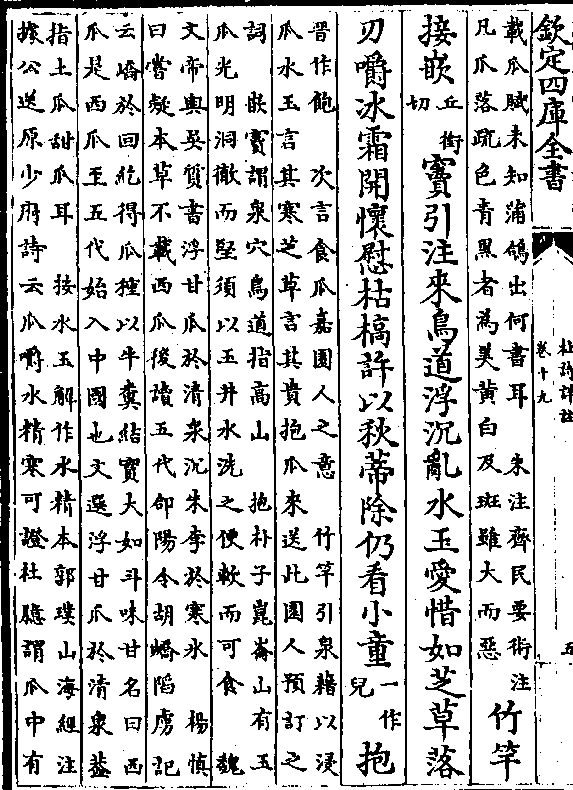 欽定四庫全書
杜詩詳註
卷十九
五
載瓜賦未知蒲鴿出何書耳 朱注齊民要術注
凡瓜落疏色青黑者為美黄白及斑雖大而惡
竹竿
接嵌丘銜切竇引注來鳥道浮沉亂水玉愛惜如芝草落
刃嚼冰霜開懷慰枯槁許以秋蒂除仍看小童一作兒抱
晉作飽 次言食瓜嘉園人之意 竹竿引泉藉以浸
瓜水玉言其寒芝草言其貴抱瓜來送此園人預訂之
詞 嵌竇謂泉穴鳥道指高山 抱朴子崑崙山有玉
瓜光明洞徹而堅須以玉井水洗之便軟而可食 魏
文帝與吳質書浮甘瓜於清泉沉朱李於寒水 楊慎
曰嘗疑本草不載西瓜後讀五代郃陽令胡嶠陷虜記
云嶠於回紇得瓜種以牛糞結實大如斗味甘名曰西
瓜是西瓜至五代始入中國也文選浮甘瓜於清泉蓋
指土瓜甜瓜耳 按水玉解作水精本郭璞山海經注
據公送原少府詩云瓜嚼水精寒可證杜臆謂瓜中有